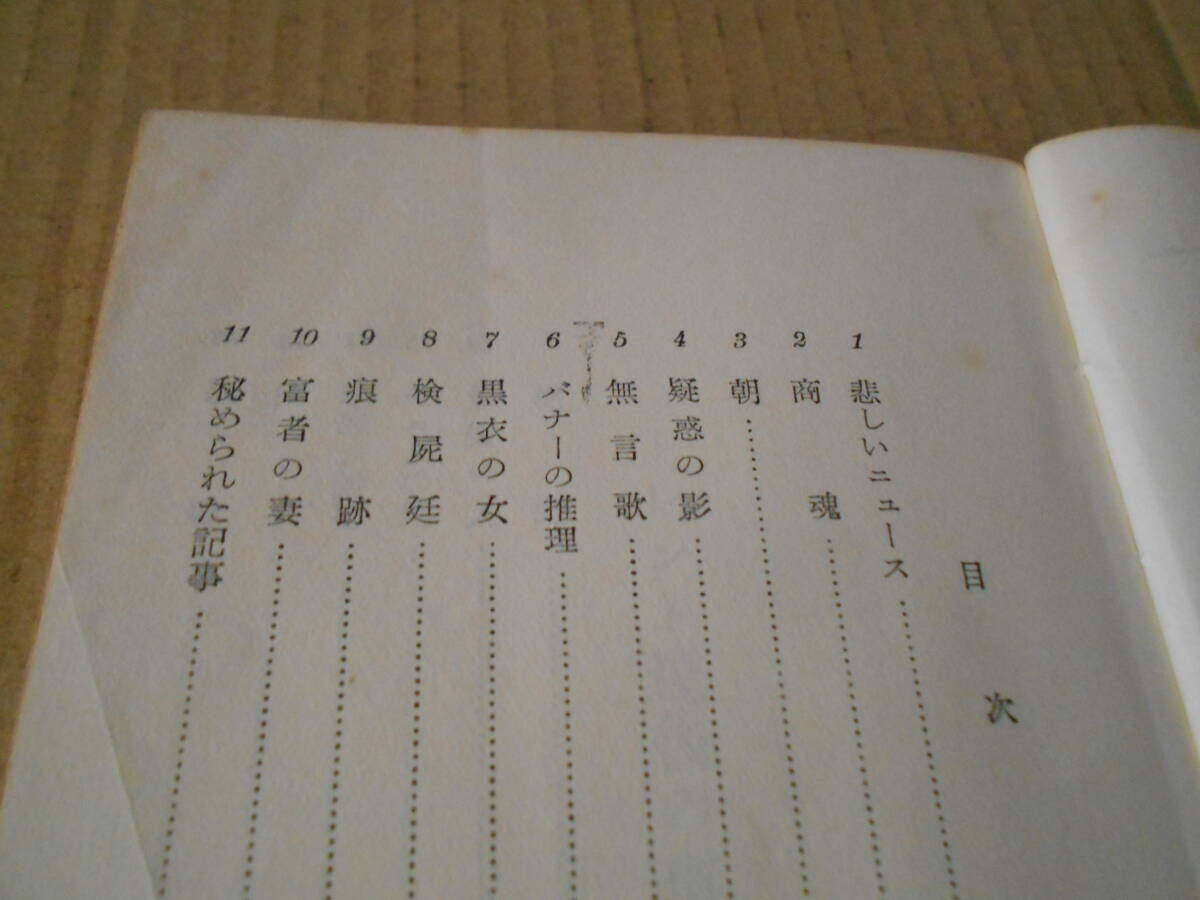 目次
1 悲しいニュース
2 商魂
3 朝
4 疑惑の影
5 無言歌
6 バナーの推理
7 黒衣の女
8 検屍廷
9 痕跡
10 富者の妻
11 秘められた記事